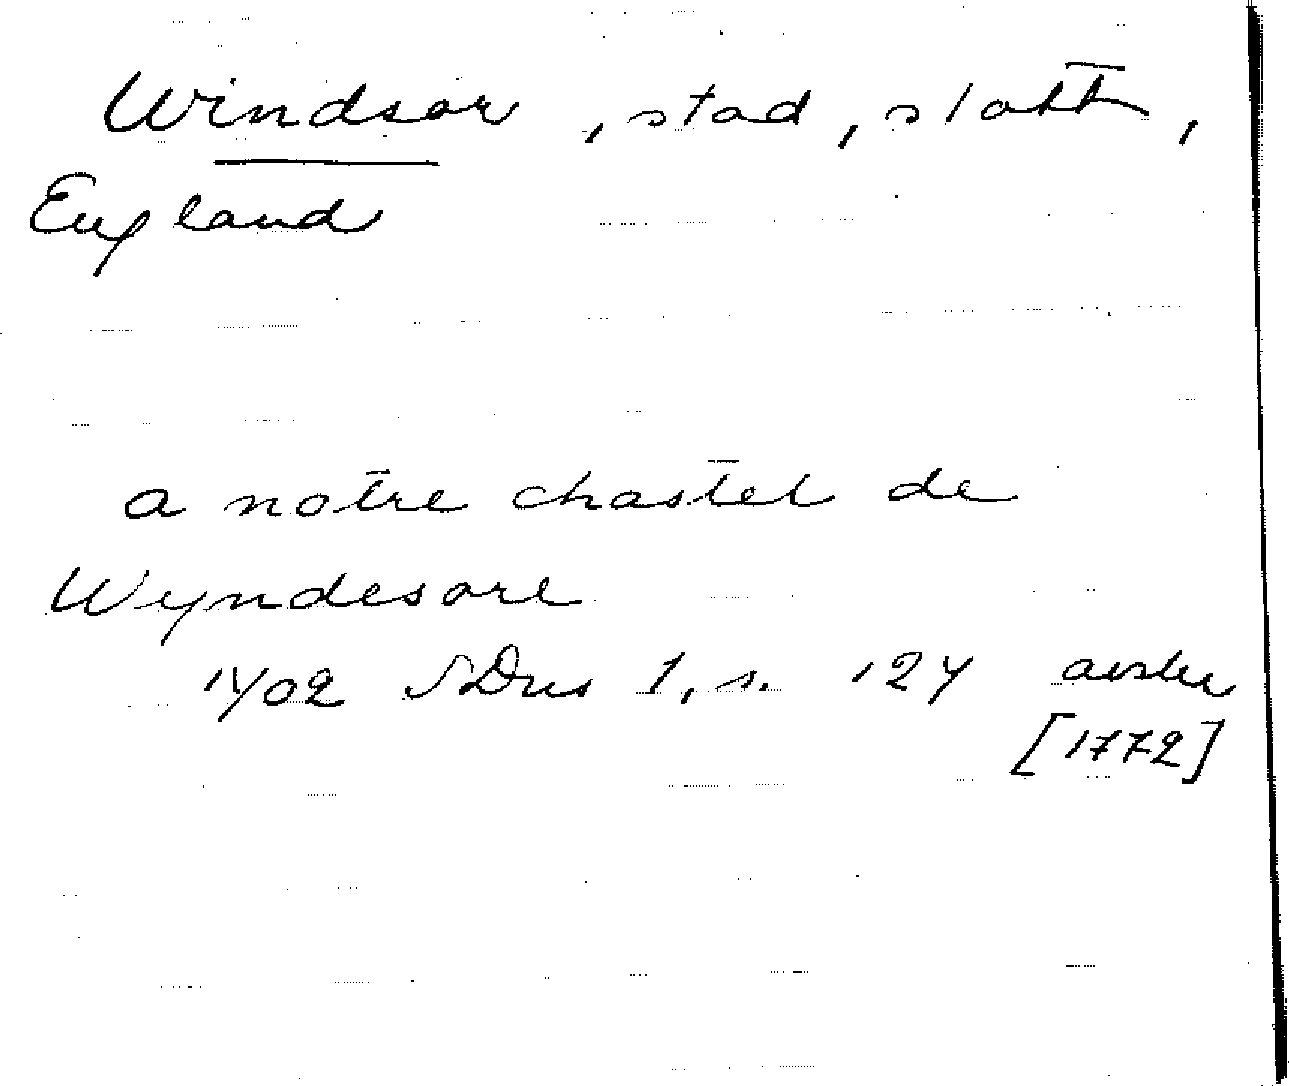 Windsor, stad, slott,
England
a notre chastel de
Wyndesore
1402 SDns 1, s. 124 avskr
[1772]